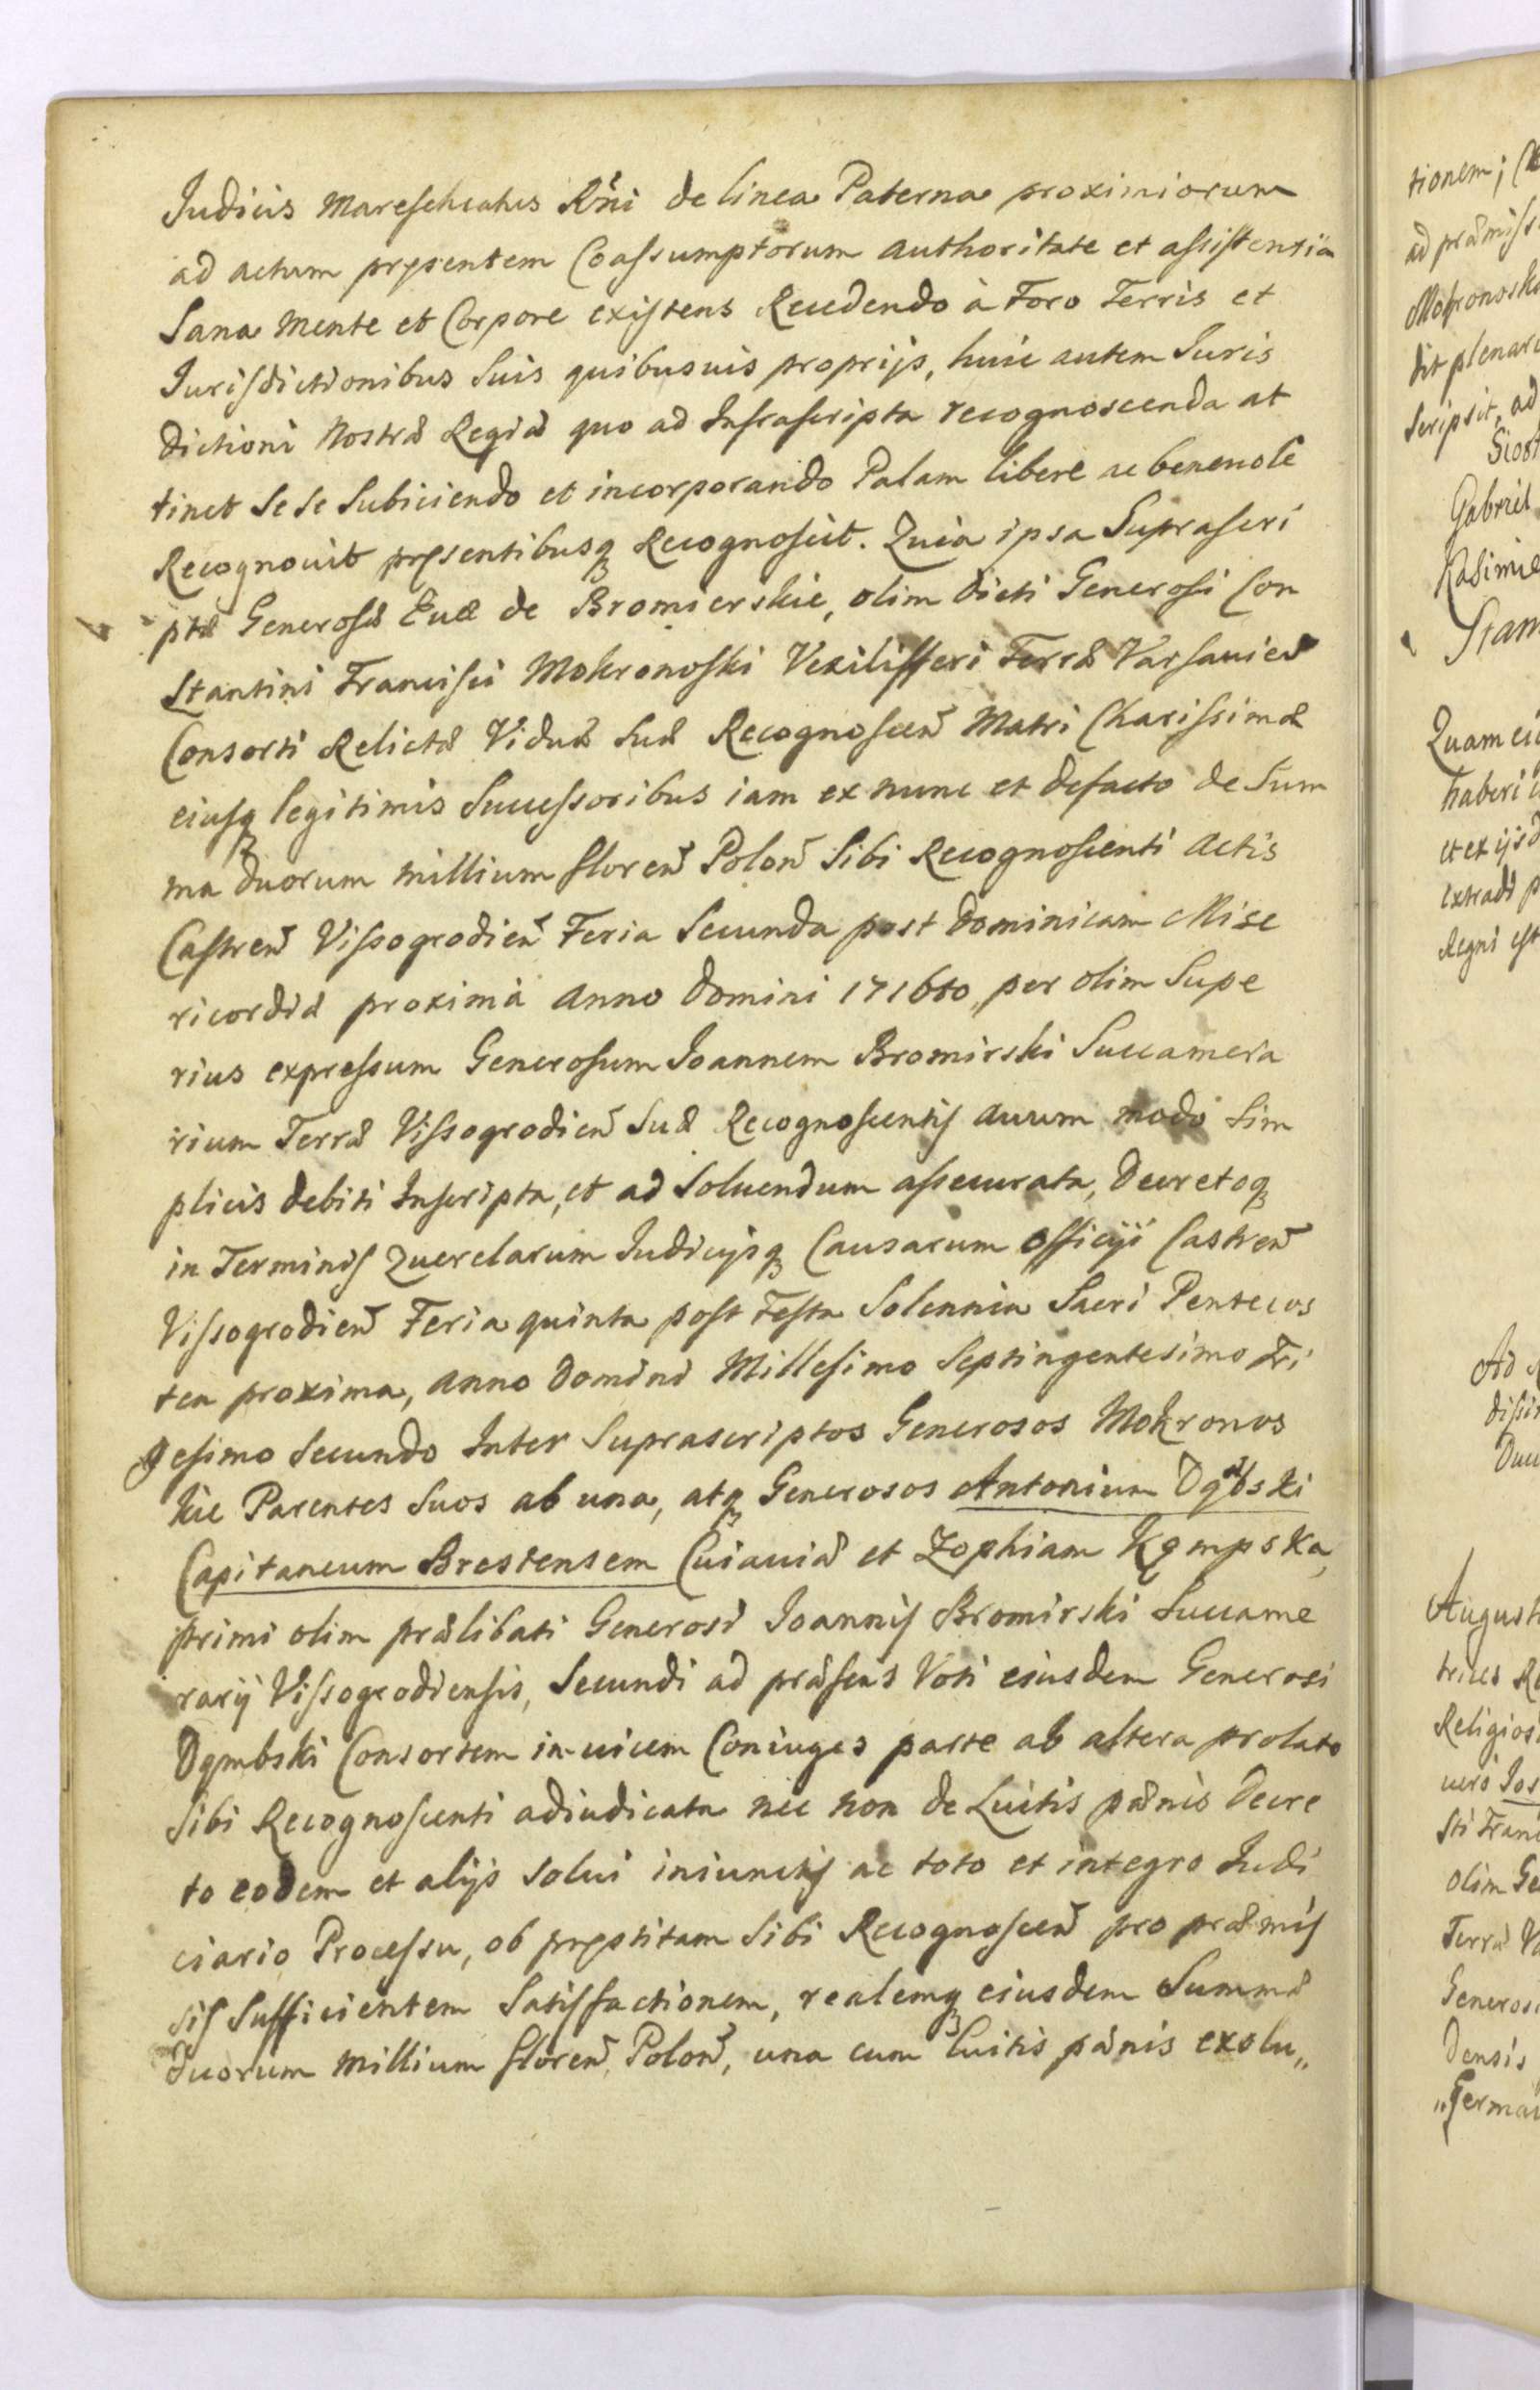 Judicis Mareschcatus Rn̄i de linea Paterna proximiorum
ad actum pręsentem Coaſsumptorum authoritate et aſsiſtentia
Sana mente et Corpore exiſtens Recedendo à Foro Terris et
Juriſdictionibus Suis quibusuis proprijs, huic autem Juris
dictioni Nostræ Regiæ quo ad Infraſcripta recognoscenda at
tinet Se Se Subiciendo et incorporando Palam libere ac beneuole
Recognouit pręsentibusq Recognoſcit. Quia ipsa Supraſcri
ptæ Generoſæ Euæ de Bromierskie, olim dicti Generoſi Con
ſtantini Franciſci Mokronoſki Vexilifferi Terræ Varſauien̄
Consorti Relictæ Viduæ Suæ Recognoſcen̄ Matri Chariſsimæ
eiuſq legitimis Succeſsoribus iam ex nunc et defacto de Sum
ma duorum millium floren̄ Polon̄ Sibi Recognoſcenti Actis
Caſtren̄ Viſsogrodien̄ Feria Secunda post Dominicam Mise
ricordiæ proxima Anno Domini 1716to, per olim Supe
rius expreſsum Generoſum Joannem Bromirski Succamera
rium Terræ Viſsogrodien̄ Suæ Recognoſcentiſ auum modo Sim
plicis debiti Inſcripta, et ad Soluendum aſsecurata, Decretoq
in Terminiſ Querelarum Judicijsq Causarum Officiji Castren̄
Viſsogrodien̄ Feria quinta poſt Feſta Solennia Sacri Pentecos
ten proxima, Anno Domini Milleſimo Septingentesimo Tri
gesimo Secundo Inter Suprascriptos Generosos Mokronos
kie Parentes Suos ab una, atq Generosos Antonium Dąbski
Capitaneum Brestensem Cuiauiæ et Zophiam Kęmpska,
primi olim prælibati Generosi Joanniſ Bromirski Succame
rarij Viſsogrodienſis, Secundi ad præſens Voti eiusdem Generosi
Dąmbski Consortem in-uicem Coniuges parte ab altera prolato
Sibi Recognoſcenti adiudicata nec non de Luitis pænis Decre
to eodem et alijs Solui iniunctiſ ac toto et integro Judi
ciario Proceſsu, ob pręstitam Sibi Recognoſcen̄ pro præmiſ
siſ Sufficientem Satiſfactionem, realemq eiusdem Summæ
duorum millium floren̄ Polon̄, una cum luitis pænis exolu,,
tionem;
ad præmiſs
Mokronosk
dit plenar
Scripsit, ad
Gabriel
Kasimie
Stan
Quam ei
haberi
et ex ijsd
extradi p
Regni eſt
Ad
diſsi
Duc
Auguſt
trices R
Religios
uero Jos
ſti Fran
olim Ge
Terræ Va
Generos
densis
,,Germa